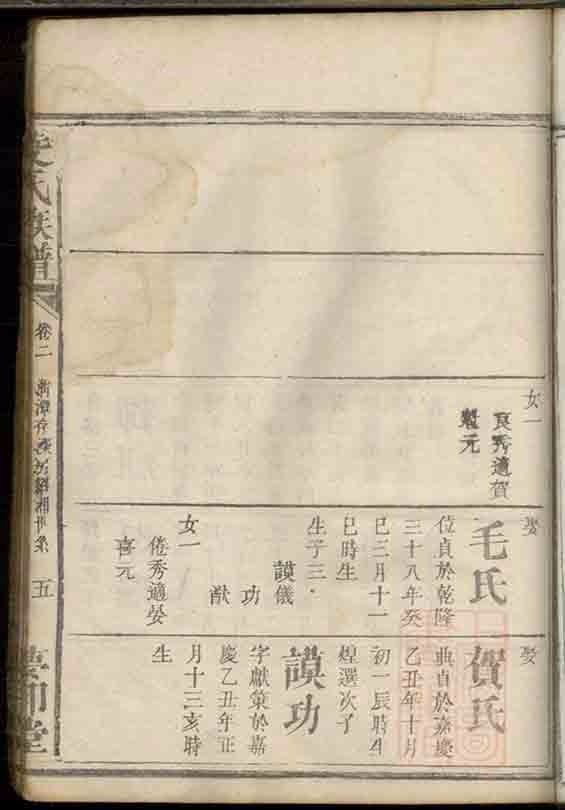 女一
良秀適賀
魁元
娶
毛氏
位貞於乾隆
三十八年癸
巳三月十一
巳時生
生子三
謨儀
功
猷
女一
倦秀適晏
喜元
娶
賀氏
典貞於嘉慶
乙丑年十月
初一辰時生
煌選次子
謨功
字獻策於嘉
慶乙丑年正
月十三亥時
生
氏族譜
卷二
五
堂